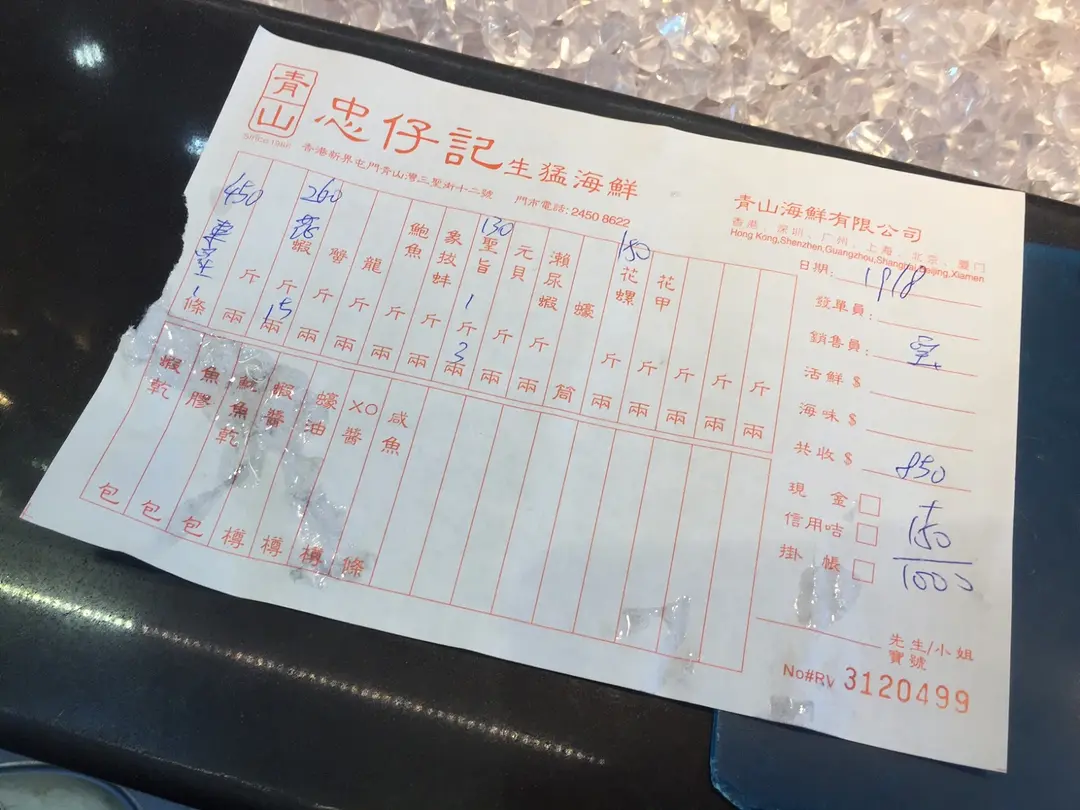 青山
Since 1968
忠仔記生猛海鮮
香港新界屯門青山灣三聖街十二號 門市電話: 2450 8622
青山海鮮有限公司
香港、深圳、广州、上海、北京、厦门
Hong Kong,Shenzhen,Guangzhou,Shanghai,Beijing,Xiamen
日期: 19/8
發單員:
銷售員:
活鮮 $
海味 $
共收 $ 850
現金
信用咭
+150
掛帳
1000
先生/小姐
寶號
No#RV 3120499
450 1條
斤兩
260 蝦 斤 15兩
蟹 斤兩
龍 斤兩
鮑魚 斤兩
象拔蚌 斤兩
130 聖旨 1斤 3兩
元貝 斤兩
瀨尿蝦 斤兩
蠔 筒
150 花螺 斤兩
花甲 斤兩
斤兩
斤兩
斤兩
蝦乾 包
魚膠 包
魷魚乾 包
蝦醬 樽
蠔油 樽
XO醬 樽
咸魚 條